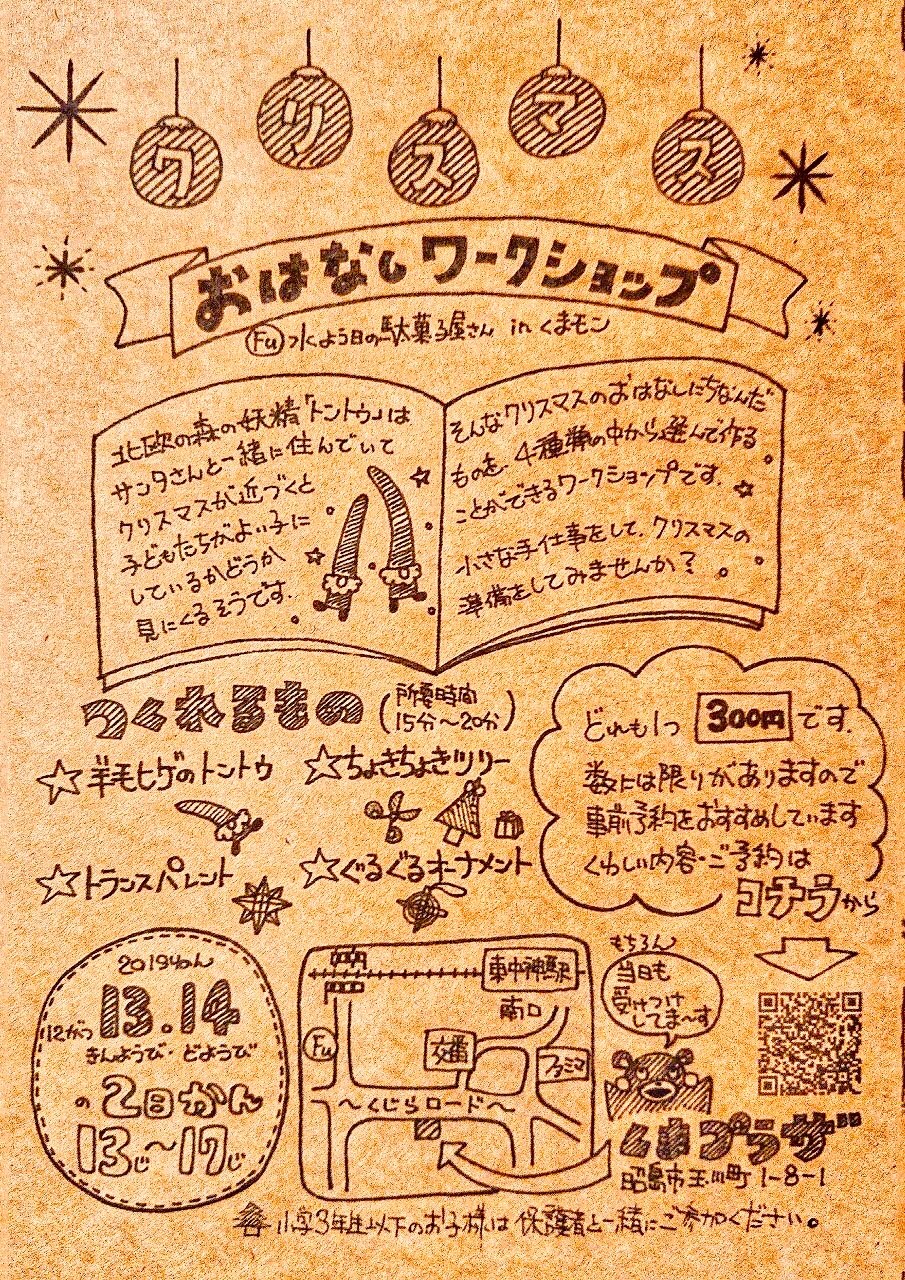 クリスマス
おはなしワークショップ
Fu 水よう日の駄菓子屋さん in くまモン
北欧の森の妖精「トントゥ」は
サンタさんと一緒に住んでいて
クリスマスが近づくと
子どもたちがよい子に
しているかどうか
見にくるそうです.
そんなクリスマスのおはなしにちなんだ
ものを、4種類の中から選んで作る
ことができるワークショップです.
小さな手仕事をして、クリスマスの
準備をしてみませんか?
つくれるもの
(所要時間
15分〜20分)
☆羊毛ヒゲのトントゥ
☆ちょきちょきツリー
☆トランスパレント
☆ぐるぐるオーナメント
どれも1つ 300円 です.
数には限りがありますので
事前予約をおすすめしています
くわしい内容・ご予約は
コチラから
2019ねん
12がつ 13.14
きんようび・どようび
の 2日かん
13じ〜17じ
東中神駅
南口
Fu
交番
ファミマ
〜くじらロード〜
もちろん
当日も
受けつけ
してま〜す
くまプラザ
昭島市玉川町 1-8-1
小学3年生以下のお子様は 保護者と一緒にご参加ください。